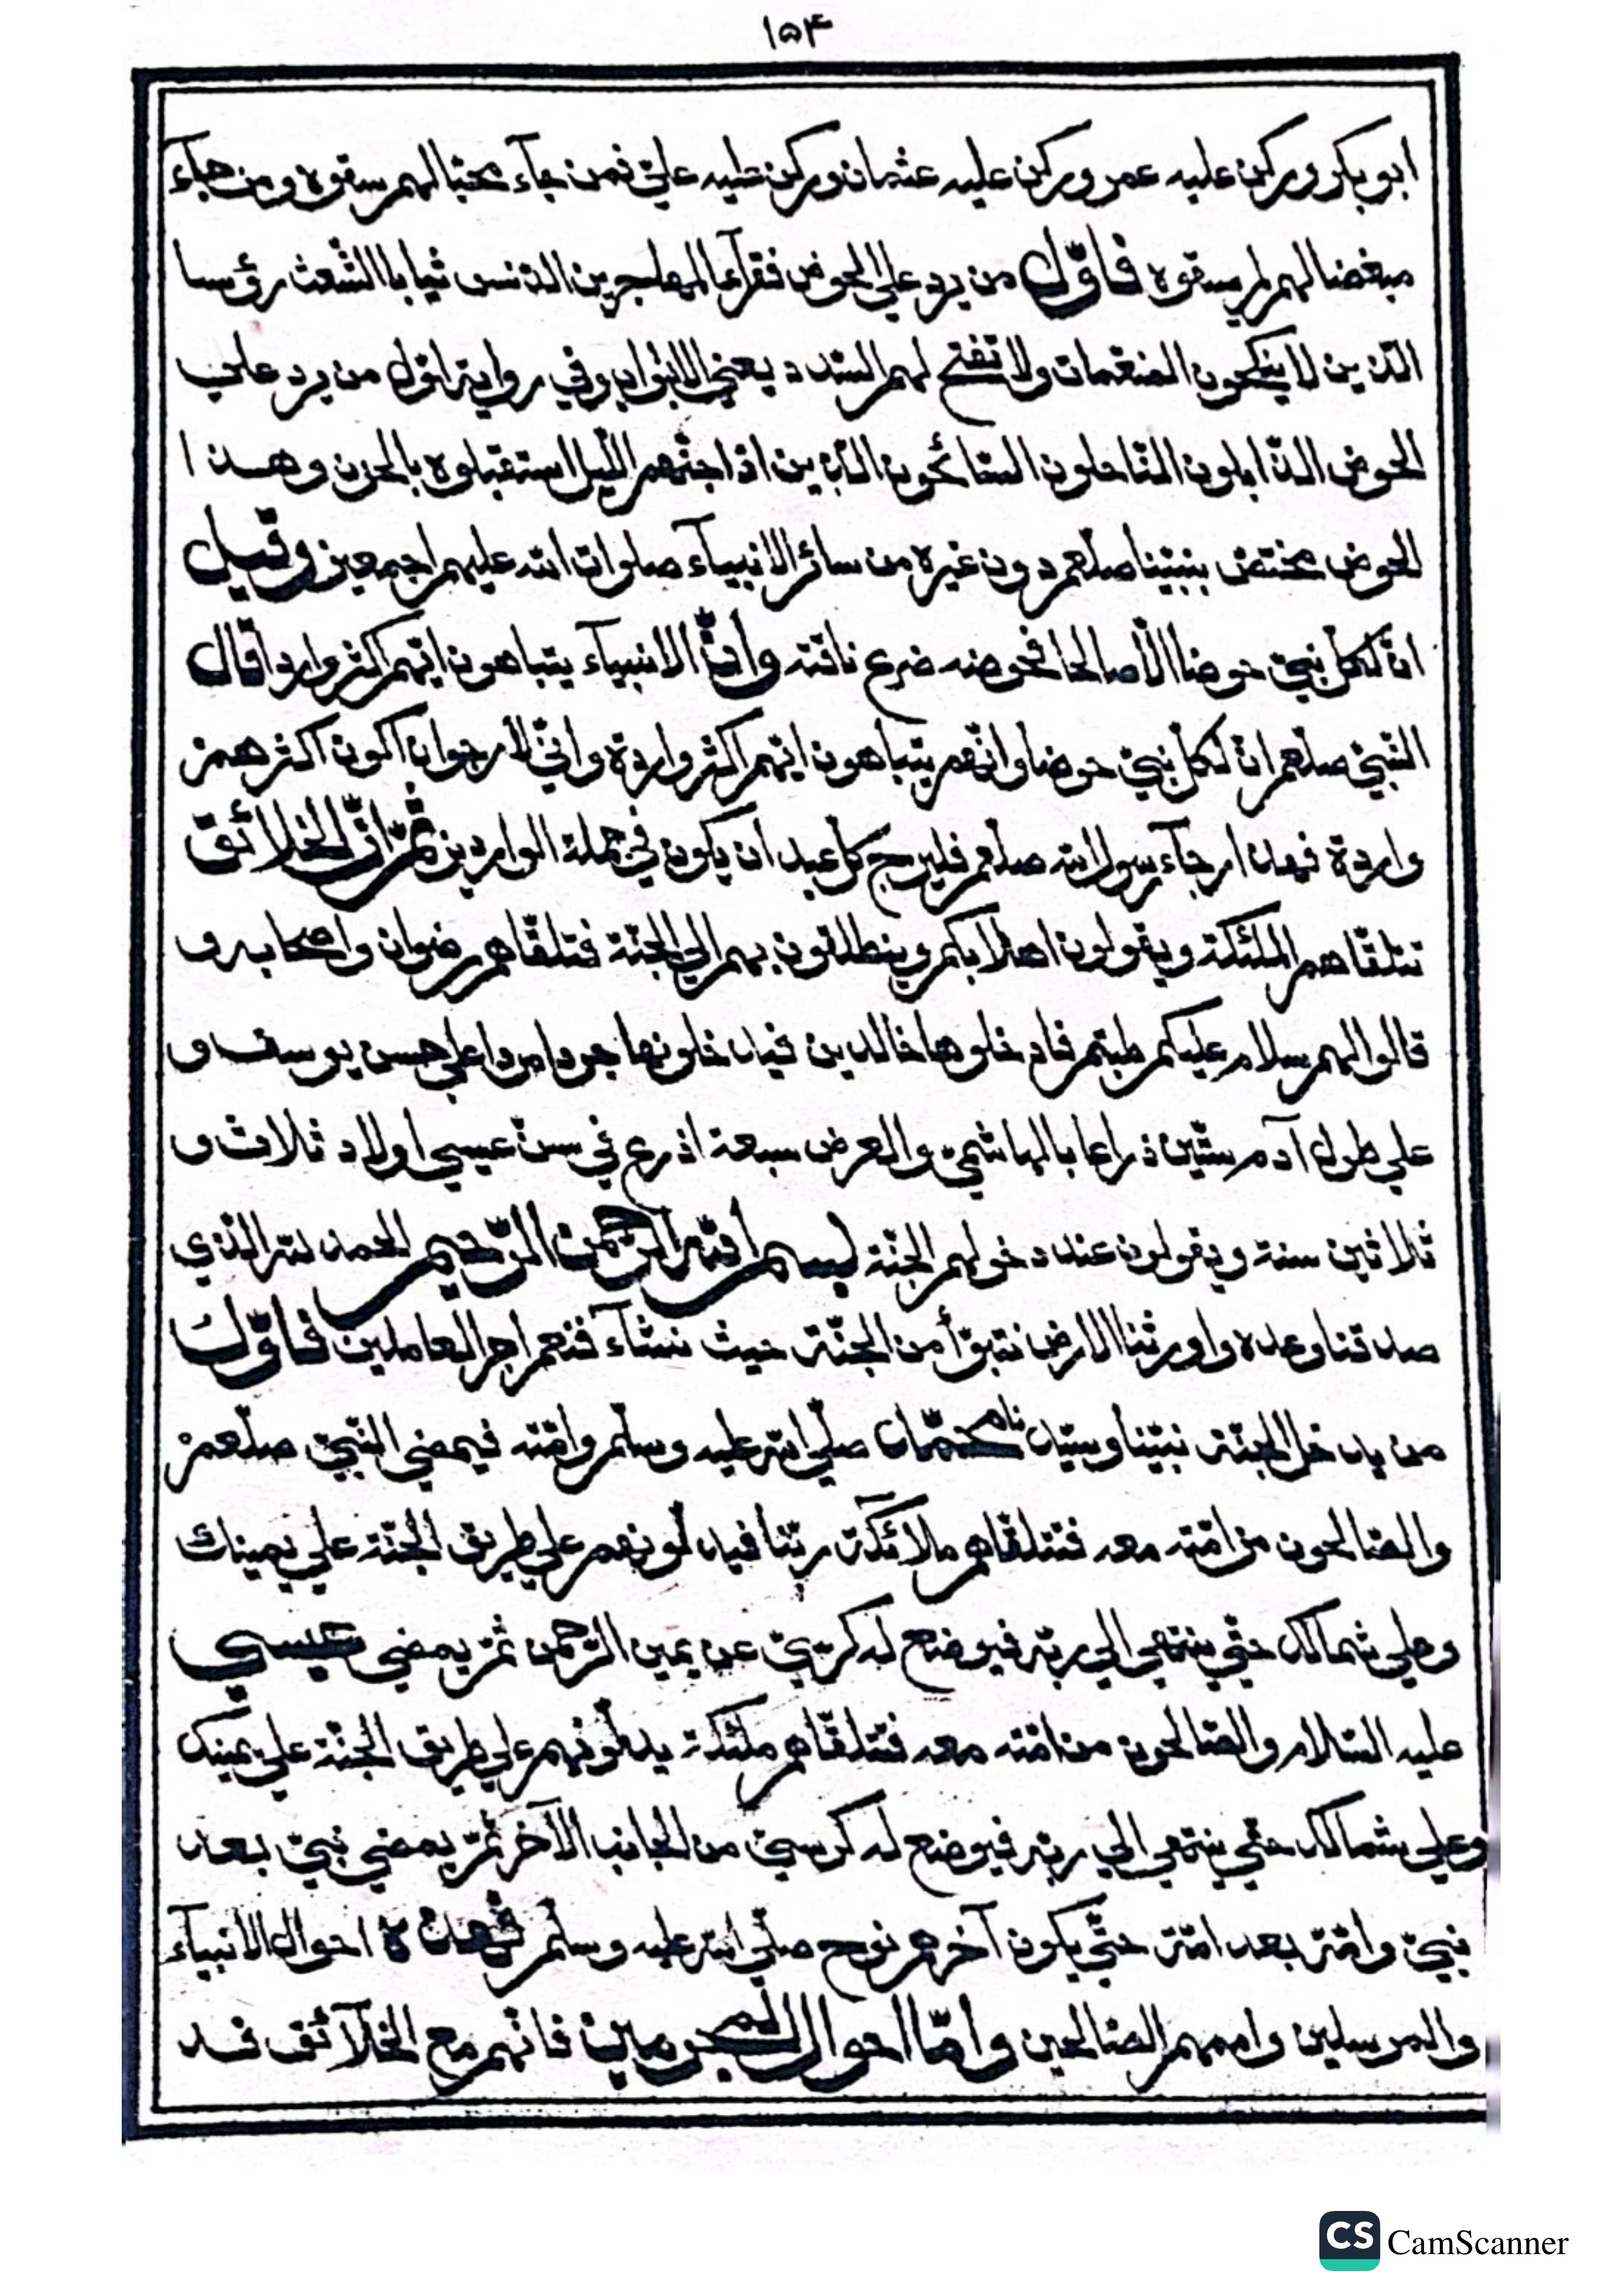 ١٥۴
ابو بكر وركن عليه عمر وركن عليه عثمان وركن عليه علي فمن جآء محبا لهم سقوه ومن جآء
مبغضا لهم لم يسقوه فاوّل من يرد علي الحوض فقرآء المهاجرين الدنس ثيابا الشعث رؤسا
الّذين لا ينكحون المنعمات ولا تفتح لهم السّدد يعني الابواب وفي رواية اوّل من يرد علي
الحوض الذّابلون النّاحلون السّائحون الذين اذا جنّهم الليل استقبلوه بالحزن وهذا
الحوض مختص بنبيّنا صلعم دون غيره من سائر الانبيآء صلوات الله عليهم اجمعين وقيل
انّ لكلّ نبيّ حوضا الّا صالحا فحوضه ضرع ناقته وانّ الانبيآء يتباهون ايّهم اكثر واردا قال
النّبيّ صلعم انّ لكلّ نبيّ حوضا وانّهم يتباهون ايّهم اكثر واردة وانّي لأرجو ان اكون اكثرهم
واردة فهذا رجآء رسول الله صلعم فليرج كل عبد ان يكون في جملة الواردين ثمّ انّ الخلائق
تتلقّاهم الملئكة ويقولون اهلا بكم وينطلقون بهم الي الجنّة فتلقّاهم رضوان واصحابه و
قالوا لهم سلام عليكم طبتم فادخلوها خالدين فيدخلونها جردا مردا علي حسن يوسف و
علي طول آدم ستّين ذراعا بالهاشميّ والعرض سبعة اذرع في سنّ عيسي اولاد ثلاث و
ثلاثين سنة ويقولون عند دخولهم الجنّة بسم الله الرّحمن الرّحيم الحمد لله الّذي
صدقنا وعده واورثنا الارض نتبوّأ من الجنّة حيث نشآء فنعم اجر العاملين فاوّل
من يدخل الجنّة نبيّنا وسيّدنا محمّد صلّي الله عليه وسلّم وامّته فيمضي النّبيّ صلعم
والصّالحون من امّته معه فتتلقّاهم ملائكة ربّنا فيدلونهم علي طريق الجنّة علي يمينك
وعلي شمالك حتّي ينتهي الي ربّه فيوضع له كرسيّ عن يمين الرّحمن ثمّ يمضي عيسي
عليه السّلام والصّالحون من امّته معه فتتلقّاهم ملئكة يدلّونهم علي طريق الجنّة علي يمينك
وعلي شمالك حتّي ينتهي الي ربّه فيوضع له كرسيّ من الجانب الآخر ثمّ يمضي نبيّ بعد
نبيّ وامّة بعد امّة حتّي يكون آخرهم نوح صلّي الله عليه وسلّم فهذه احوال الانبيآء
والمرسلين واممهم الصّالحين وامّا احوال المجرمين فانّهم مع الخلآئق قد
CS CamScanner